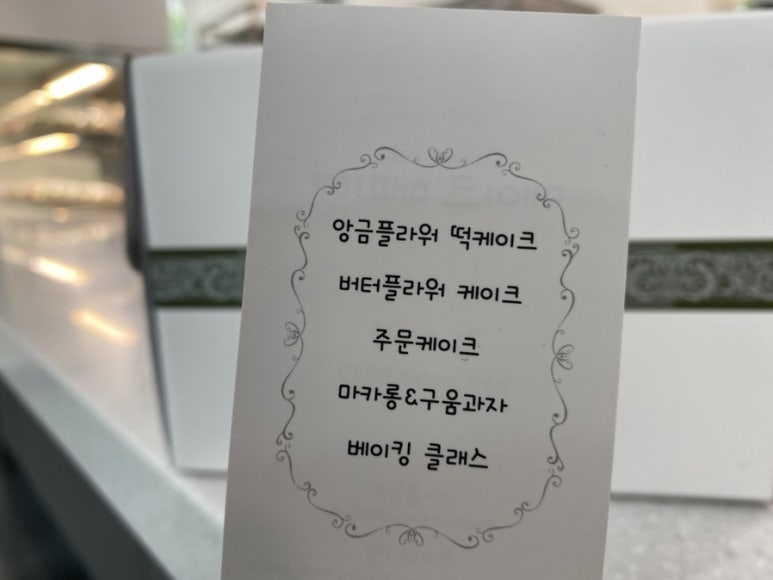 앙금플라워 떡케이크
버터플라워 케이크
주문케이크
마카롱&구움과자
베이킹 클래스